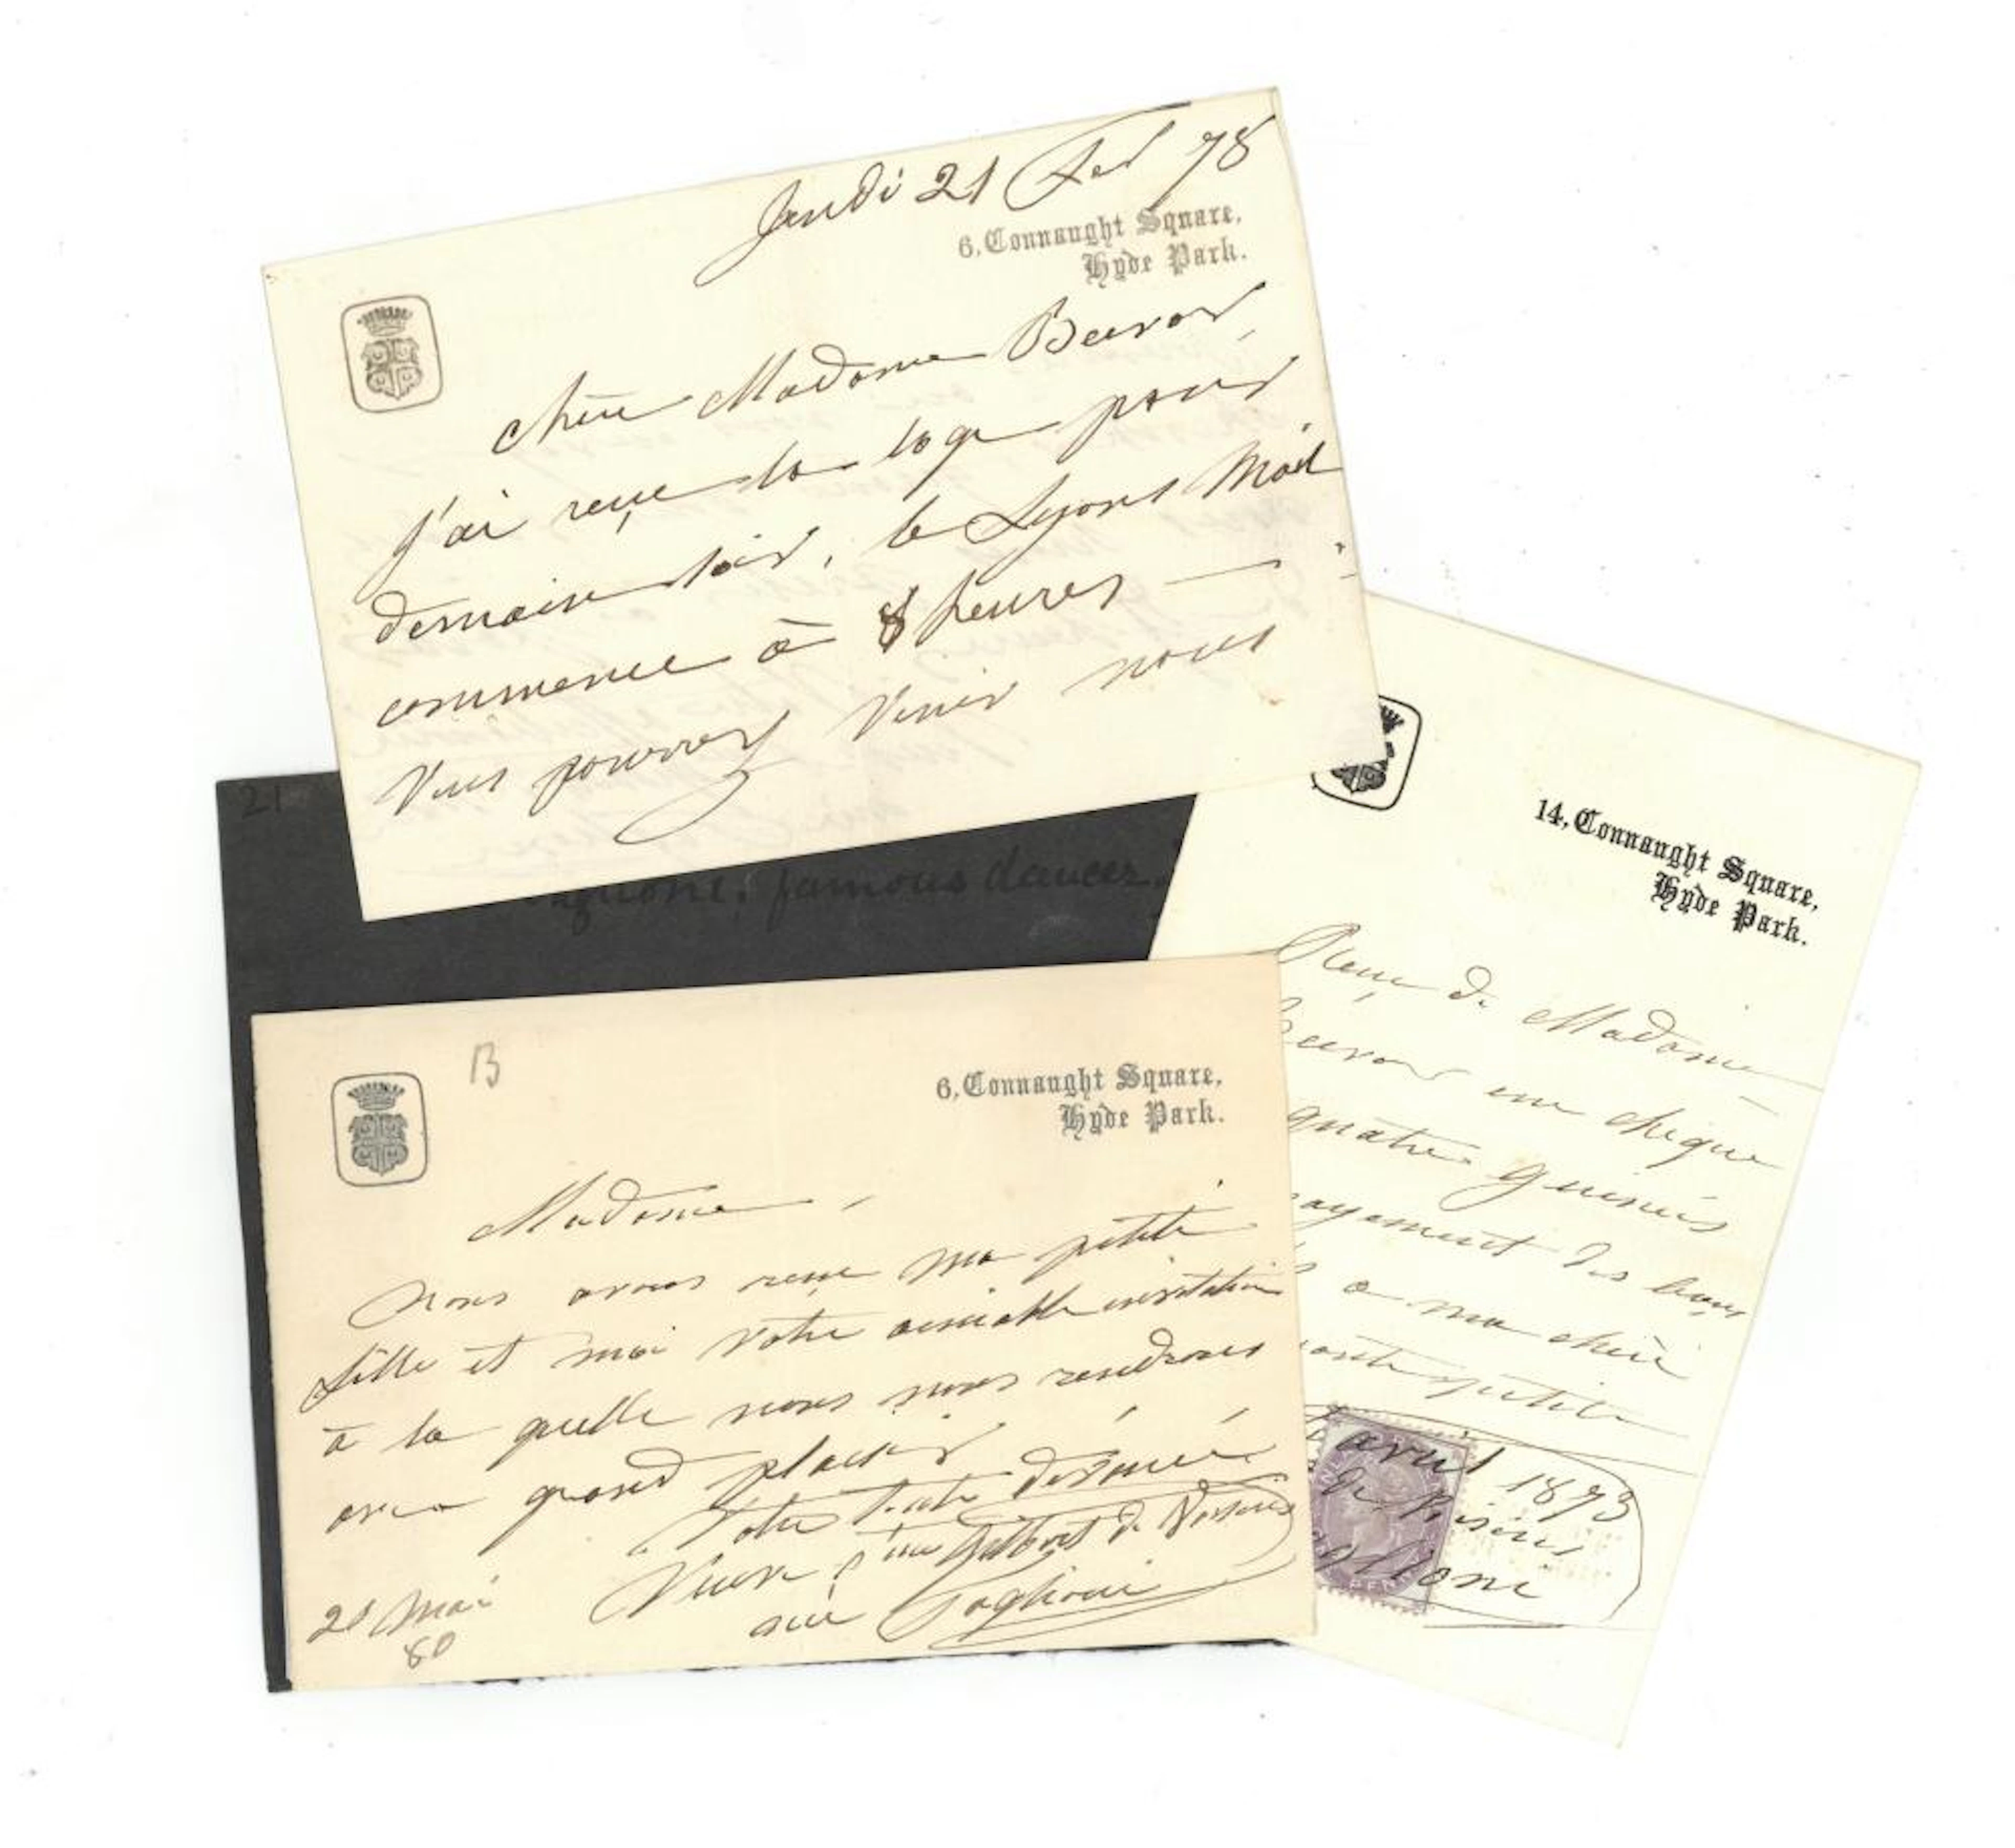 Jeudi 21 Fev 78
6, Connaught Square,
Hyde Park.
Chère Madame Beevor,
J'ai reçue la loge pour
demain soir, le Lyons Mail
commence à 8 heures —
Vous pourrez venir nous
21
famous dancer.
14, Connaught Square,
Hyde Park.
Reçu de Madame
Beevor un chèque
quatre guinées
payement des leçons
a ma chère
petite
avril 1873
de Voisins
Taglioni
B
6, Connaught Square,
Hyde Park.
Madame,
Nous avons reçue ma petite
fille et moi votre aimable invitation
à la quelle nous nous rendrons
avec grand plaisir
Votre toute dévouée
Gilbert de Voisins
née Taglioni
21 Mai
80